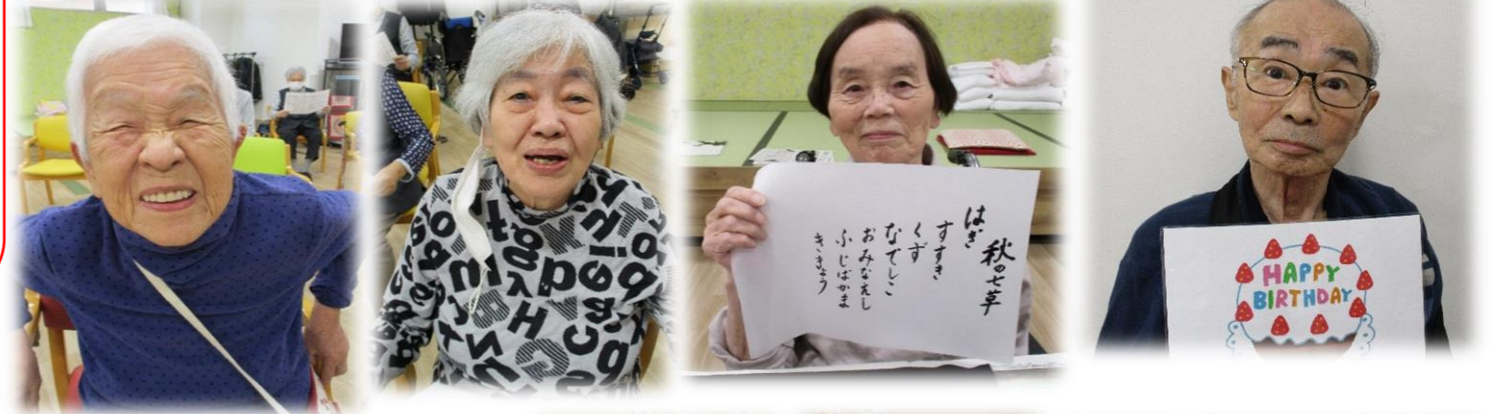 秋の七草
はぎ
すすき
くず
なでしこ
おみなえし
ふじばかま
ききょう
HAPPY
BIRTHDAY